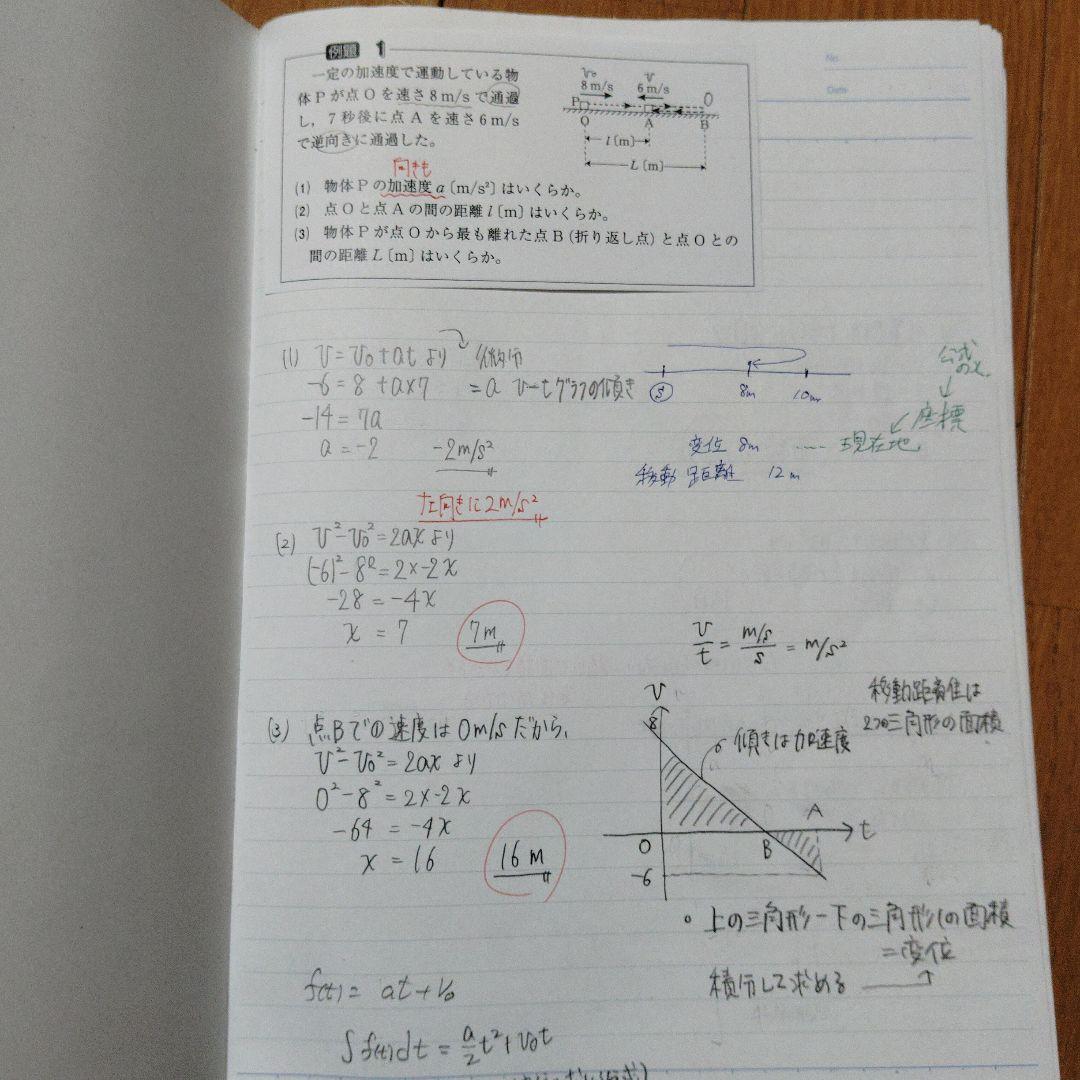 例題 1
No.
Date
一定の加速度で運動している物
体Pが点Oを速さ8m/sで通過
し，7秒後に点Aを速さ6m/s
で逆向きに通過した。
v₀ v
8m/s 6m/s 0
P
O A B
l〔m〕
L〔m〕
向きも
(1) 物体Pの加速度a〔m/s²〕はいくらか。
(2) 点Oと点Aの間の距離l〔m〕はいくらか。
(3) 物体Pが点Oから最も離れた点B（折り返し点）と点Oとの
間の距離L〔m〕はいくらか。
(1) v=v₀+atより
-6=8+a×7 =a v-tグラフの傾き
-14=7a
a=-2 -2m/s²
左向きに2m/s²
S 8m 10m
変位 8m …… 現在地
移動距離 12m
公式
のx
座標
(2) v²-v₀²=2axより
(-6)²-8²=2×-2x
-28=-4x
x=7 7m
v/t = m/s/s = m/s²
(3) 点Bでの速度は0m/sだから、
v²-v₀²=2axより
0²-8²=2×-2x
-64=-4x
x=16 16m
移動距離は
2つの三角形の面積
v
8
傾きは加速度
A
0 B t
-6
上の三角形-下の三角形の面積
=変位
積分して求める
f(t)=at+v₀
∫f(t)dt=a/2t²+v₀t